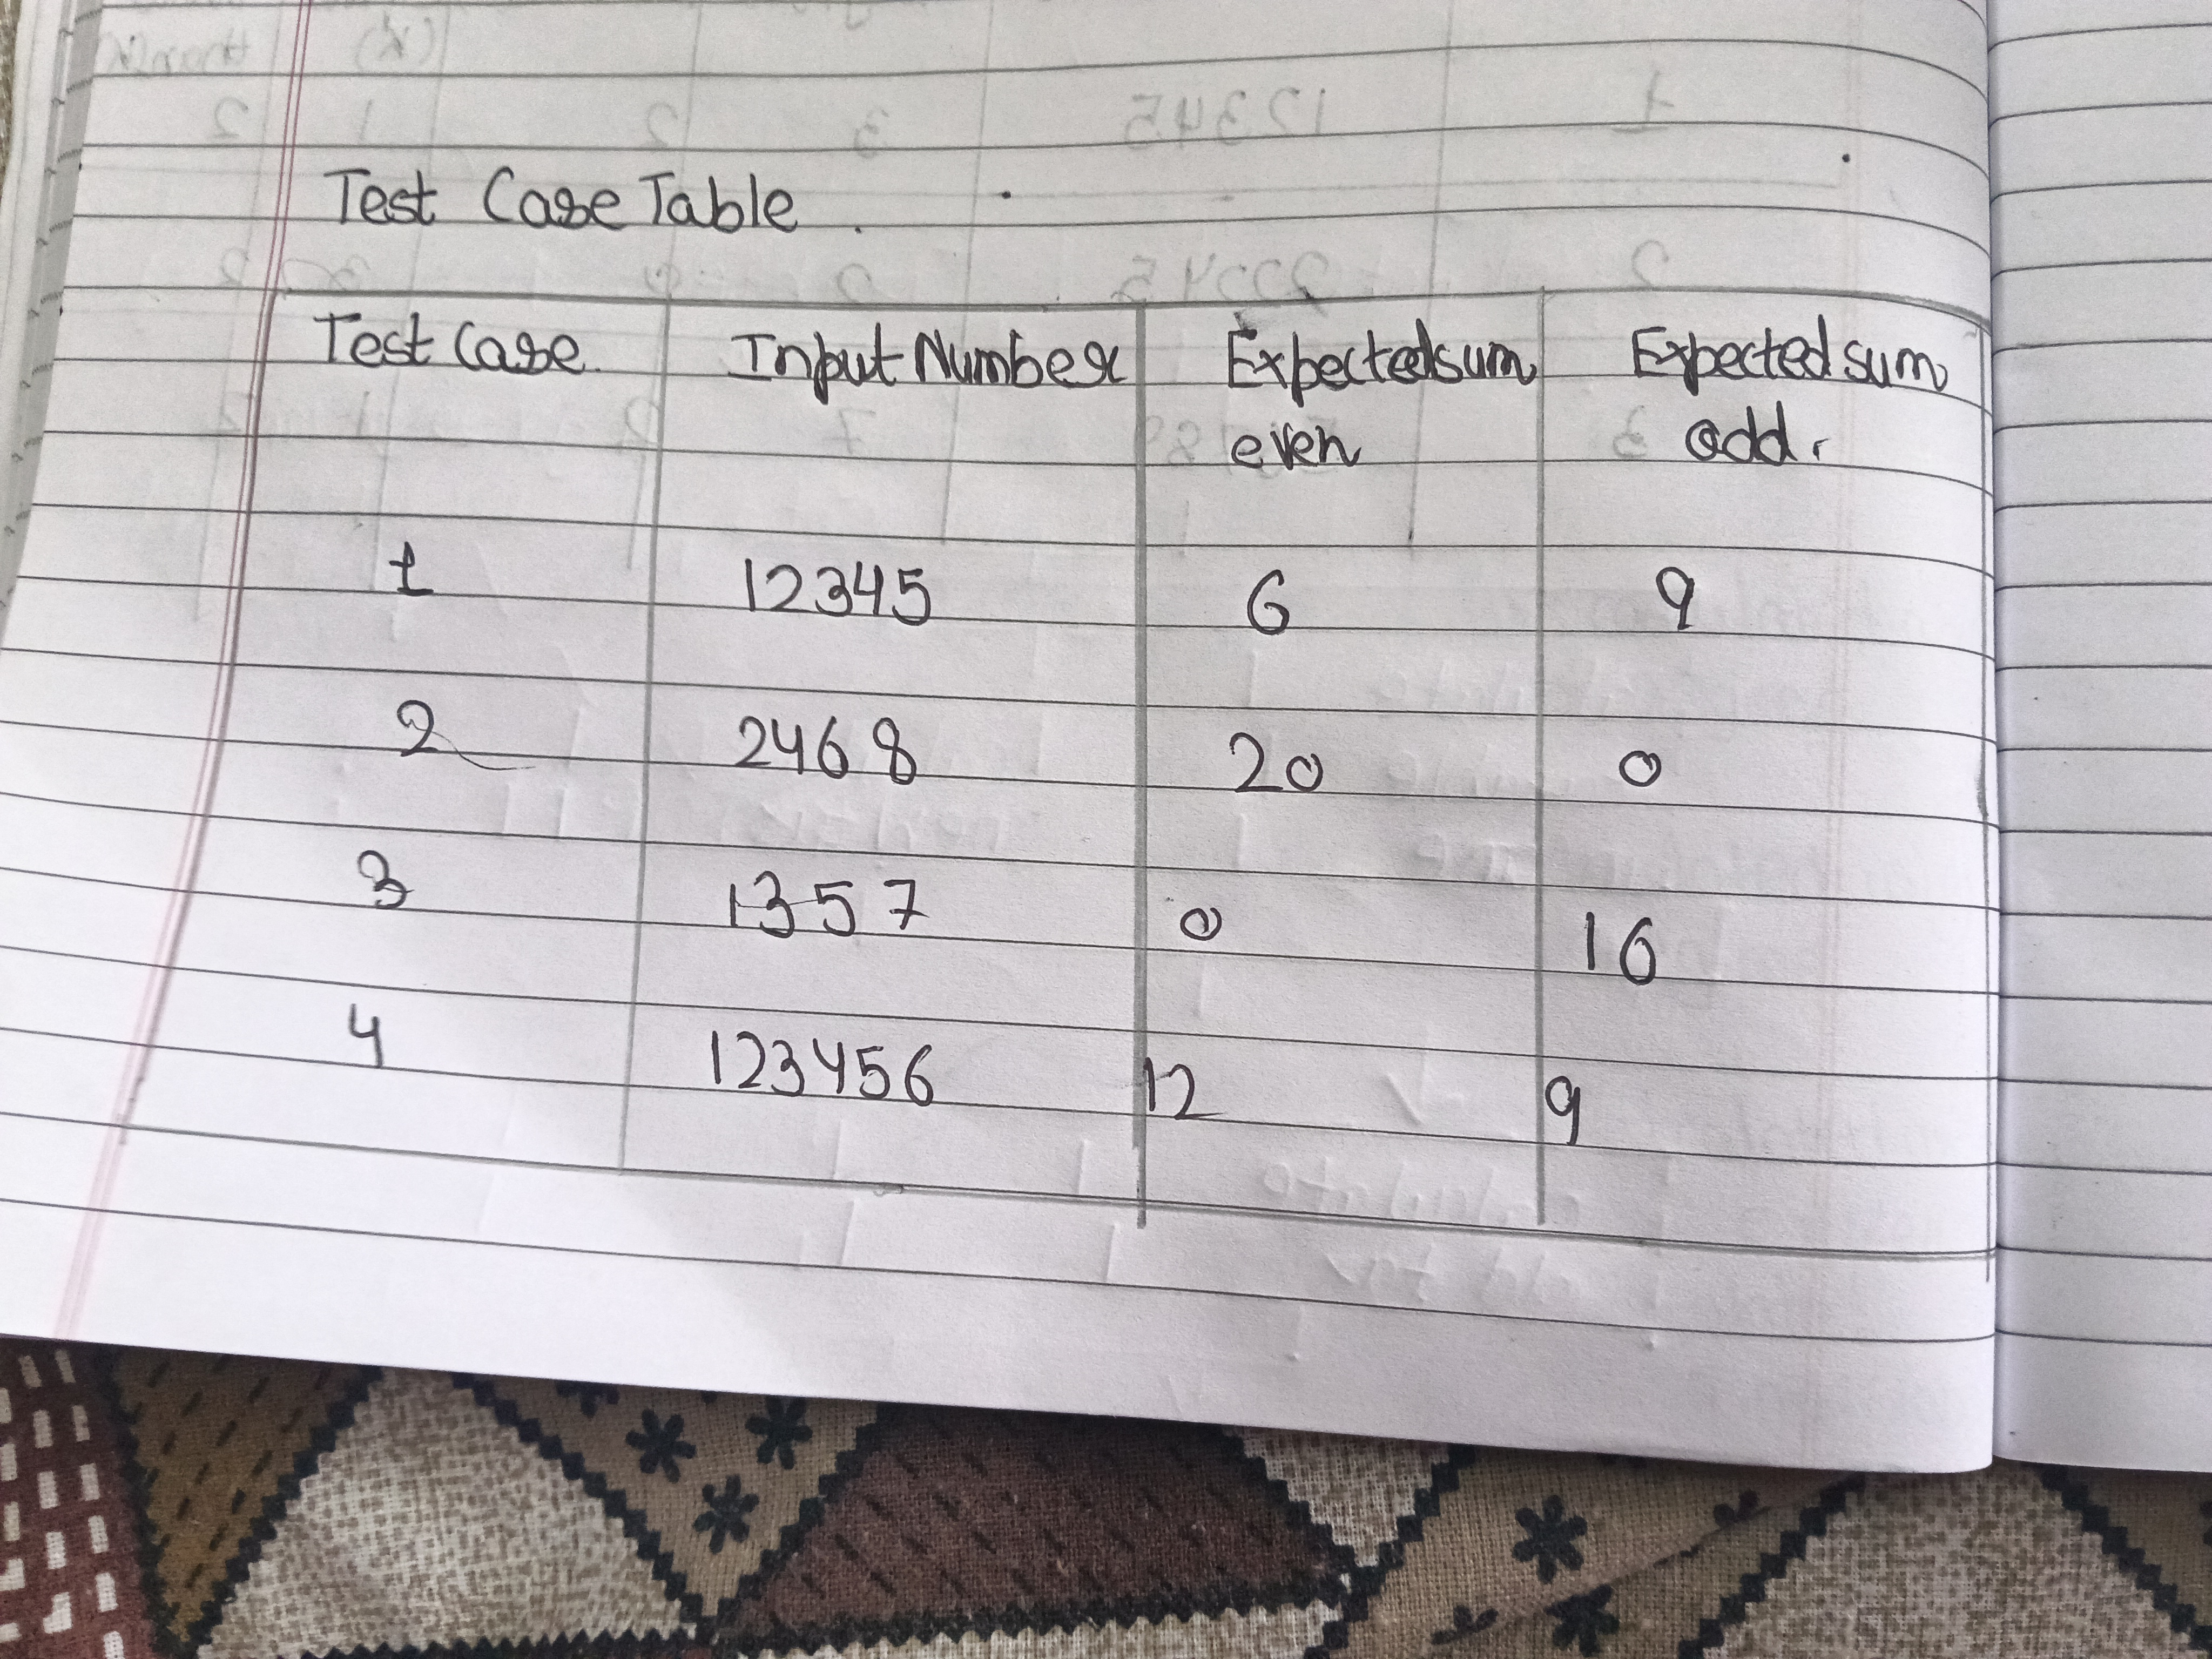 Test Case Table.
Test Case Input Number Expected sum Expected sum
even odd.
1 12345 6 9
2 2468 20 0
3 1357 0 16
4 123456 12 9